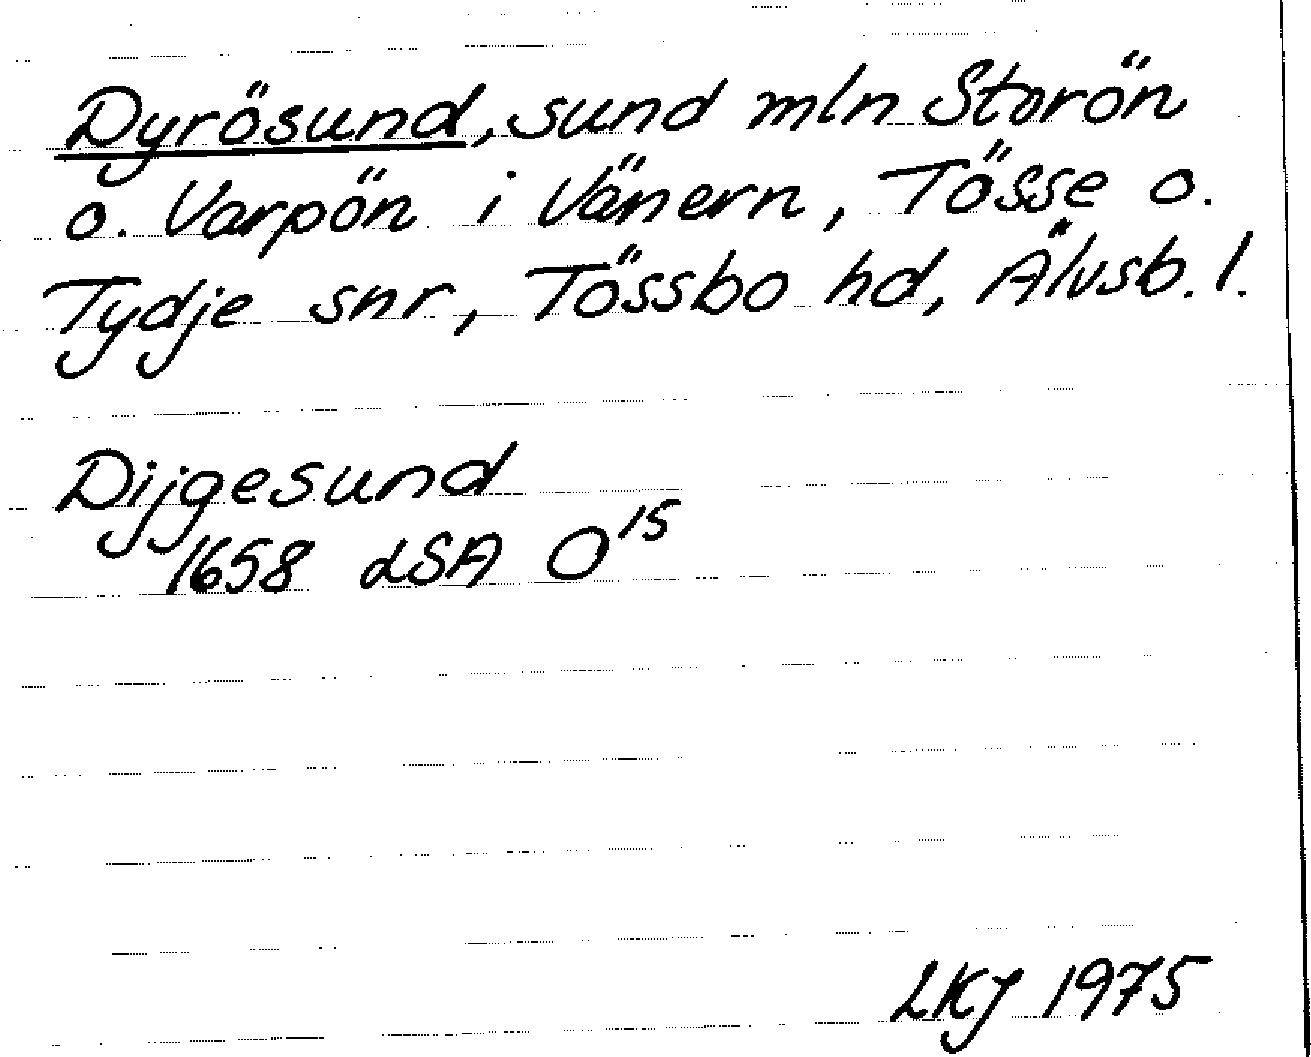 Dyrösund, sund mln Storön
o. Varpön i Vänern, Tösse o.
Tydje snr, Tössbo hd, Älvsb. l.
Dijgesund
1658 LSA O¹⁵
LKJ 1975